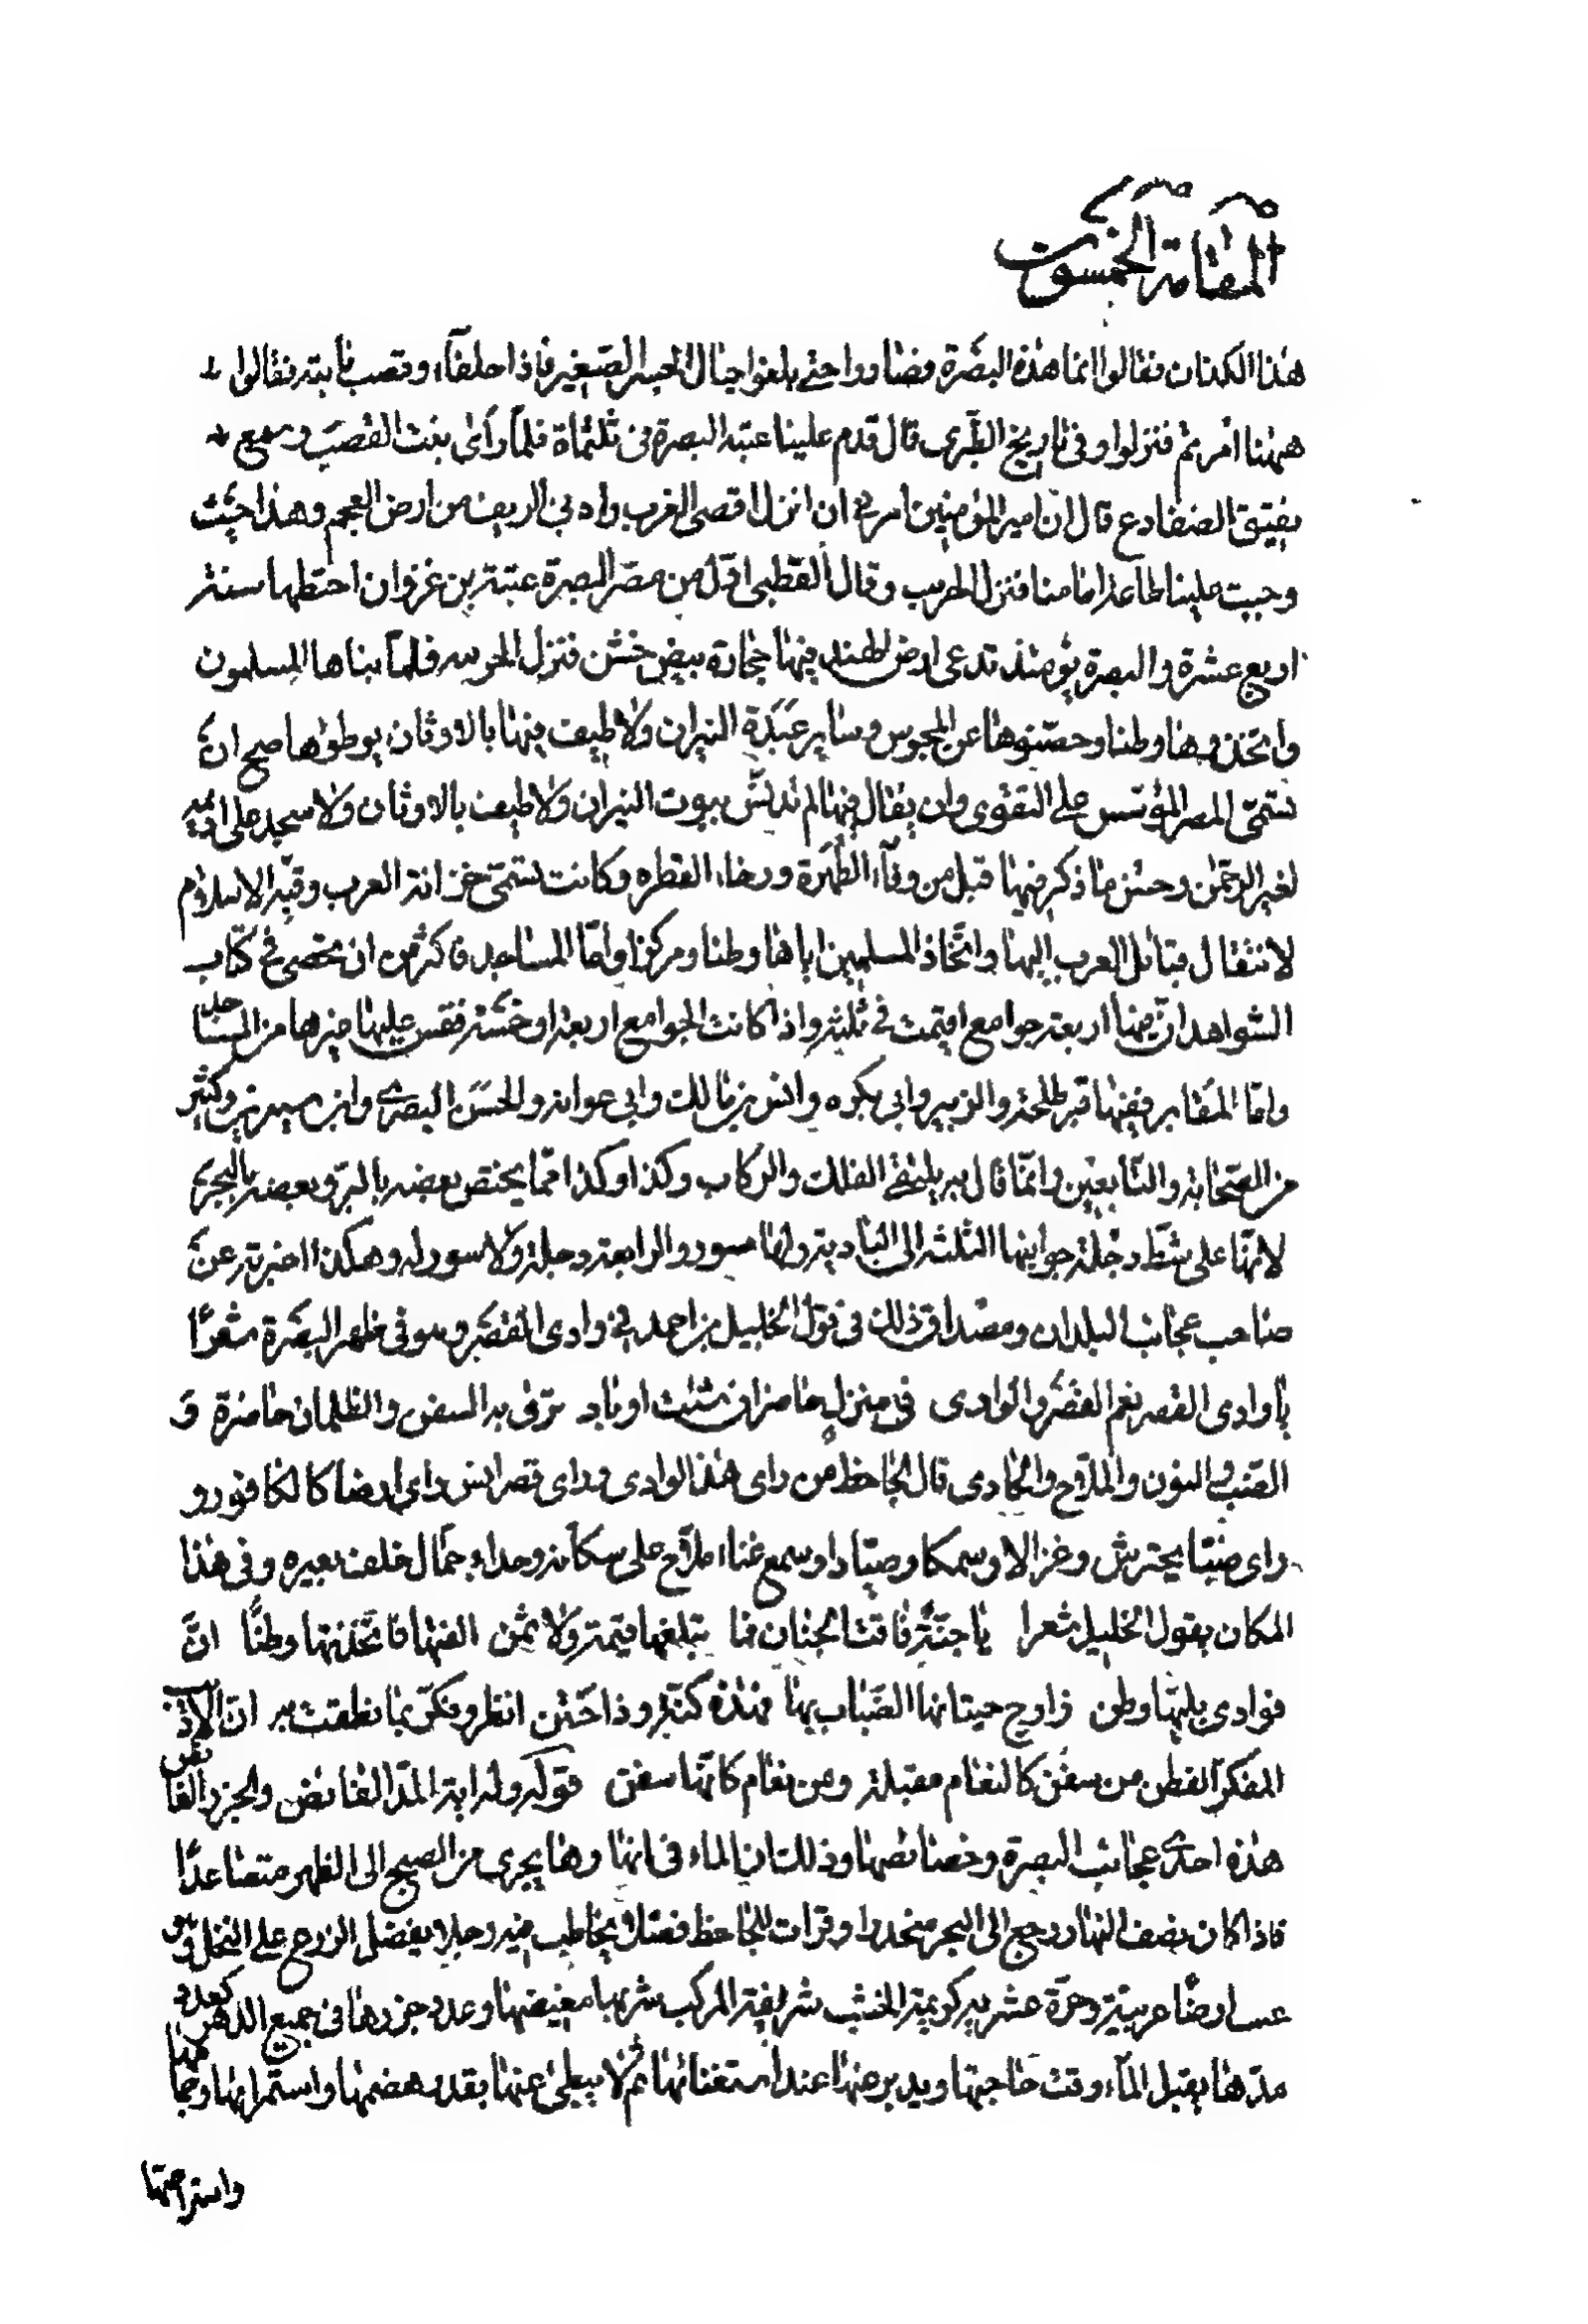 المقامة الخمسون
هذا الكذان فقالوا انما هذه البصرة فضاوروا حتى بلغوا حيال الجسر الصغير فاذا حلفاء وقصب نابتة فقالوا
ههنا امرتم فنزلوا وفى تاريخ الطبرى قال قدم علينا عتبة البصرة فى ثلثماة فلما راى بغت القصب وسمع
نقيق الضفادع قال ان امير المؤمنين امرنى ان انزل اقصى العرب وادنى الريف من ارض العجم وهذا حيث
وجبت علينا طاعة امامنا فنزل الخريب وقال القطبى اول من مصر البصرة عتبة بن غزوان احتطها سنة
اربع عشرة والبصرة يومئذ تدعى ارض الهند فيها حجارة بيض خشن فنزل الخريبه فلما بناها المسلمون
واتخذوها وطنا وحصنوها عن المجوس وساير عبدة النيران ولا طيف فيها بالاوثان يوطوها صح ان
تسمى المصر المؤسس على التقوى وان يقال فيها لم تدنس ببيوت النيران ولا طيف بالاوثان ولا سجد على اديمه
لغير الرحمن وحسن ما ذكر فيها قبل من وفاء الطهرة ورضاء الفطره وكانت تسمى خزانة العرب وقبة الاسلام
لانتقال قبائل العرب اليها واتخاذ المسلمين اياها وطنا ومركزا واما المساجد فاكثر من ان تحصى فى كتاب
الشواهد ان فيها اربعة جوامع اقيمت فى ثلثة واذا كانت الجوامع اربعة او خمسة فقس عليها غيرها من المساجد
واما المقابر ففيها قبر طلحة والزبير وابى بكره وانس بن مالك وابى عوانه والحسن البصرى وابن سيرين وكثير
من الصحابة والتابعين وانما قال به يلتقى الفلك والركاب وكذا وكذا مما يختص بعضه بالبر وبعضه بالبحر
لانها على شط دجلة جوانبها الثلثه الى البادية ولها سور والرابعة دجلة ولا سور له وهكذا اخبرته عن
صاحب عجائب البلدان ومصداق ذلك فى قول الخليل بن احمد فى وادى القصر وهو فى ظهر البصرة شعرا
يا وادى القصر نعم القصر والوادى فى منزل حاضر ان شئت او باد ترقى به السفن والظلمان حاضرة و
الضب والنون والملاح والحادى قال الجاحظ من راى هذا الوادى وراى قصر انس راى ارضا كالكافور و
راى ضبا يحترش وغزالا وسمكا وصيادا وسمع غناء ملاح على سكانه وحداء جمال خلف بعيره وفى هذا
المكان يقول الخليل شعرا يا جنة فاقت الجنان فما تبلغها قيمة ولا ثمن الفتها فاتخذتها وطنا ان
فوادى بلبها وطن زاوج حيتانها الضباب بها فهذه كنة وذا ختن انظر وفكر بما نطقت به ان الاذيب
المفكر الفطن من سفن كالنعام مقبلة ومن نعام كانها سفن قوله وله اية المد الفائض والجزر الغائض
هذه احدى عجائب البصرة وخصائصها وذلك ان الماء فى انهارها يجرى من الصبح الى الظهر متصاعدا
فاذا كان نصف النهار رجع الى البحر منحدرا وقرات للجاحظ فصلا يخاطب فيه رجلا يفضل الزرع على النخل
ارضا عربية وحرة عشرية كريمة الخشب شريفة المركب شربها مغيضها وعدد جزرها فى جميع الدهر كعدد
مدها يقبل الماء وقت حاجتها ويدبر عنها عند استغنائها ثم لا يبطى عنها بقدر هضمها واستمرائها وجمامها
واستراحتها